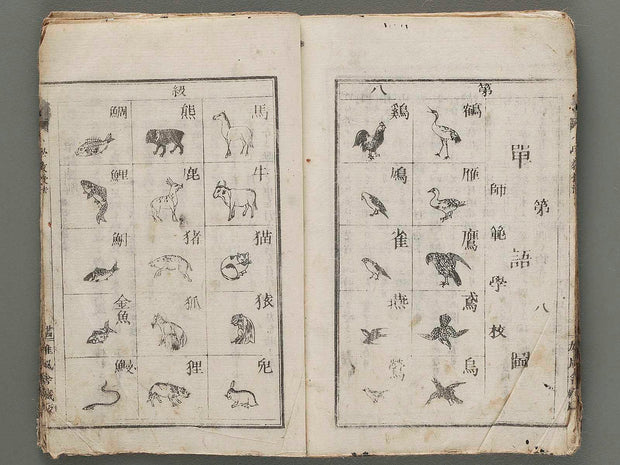 第八級
第八
單語圖
師範學校
鶴
雁
鷹
鳶
烏
鷄
鳩
雀
燕
鶯
馬
牛
猫
猿
兎
熊
鹿
猪
狐
狸
鯛
鯉
鮒
金魚
鰻